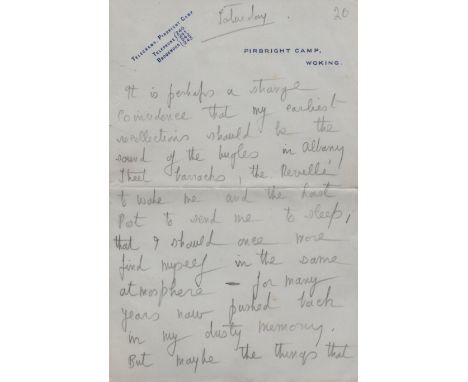 Saturday.
20
TELEGRAMS, PIRBRIGHT CAMP
TELEPHONE
BROOKWOOD
PIRBRIGHT CAMP,
WOKING.
It is perhaps a strange
coincidence that my earliest
recollections should be the
sound of the bugles in Albany
Street barracks, the Reveillé
to wake me and the Last
Post to send me to sleep,
that I should once more
find myself in the same
atmosphere - for many
years now pushed back
in my dusty memory.
But maybe the things that